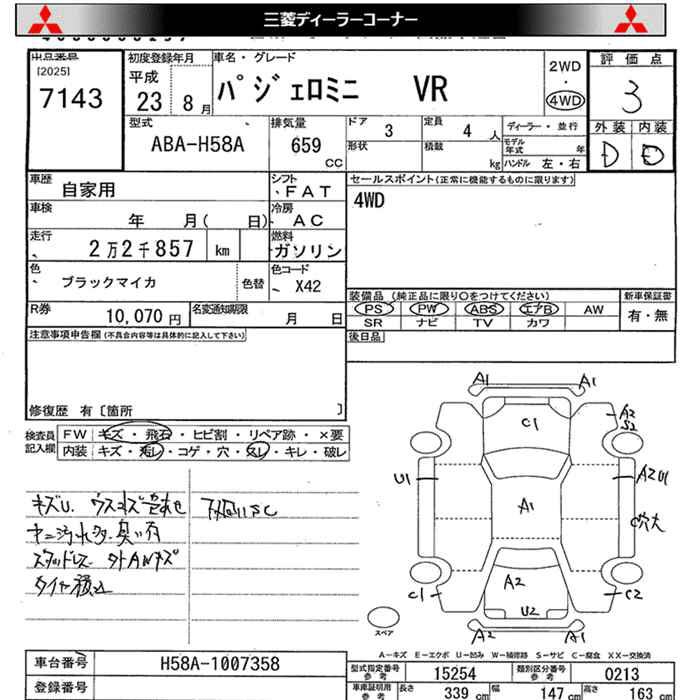 三菱ディーラーコーナー
出品番号
[2025]
7143
初度登録年月
平成
23 8月
車名・グレード
パジェロミニ VR
2WD
・
4WD
評価点
3
外装 内装
D D
型式
ABA-H58A
排気量
659
CC
ドア 3
定員 4 人
形状
積載 kg
ディーラー・並行
モデル年式 年
ハンドル 左・右
車歴 自家用
シフト FAT
セールスポイント(正常に機能するものに限ります)
4WD
車検 年 月( 日)
冷房 AC
走行 2万2千857 km
燃料 ガソリン
色 ブラックマイカ
色替
色コード X42
装備品 (純正品に限り○をつけてください)
新車保証書
PS PW ABS エアB AW
有・無
SR ナビ TV カワ
R券 10,070円
名変通知期限 月 日
後日品
注意事項申告欄(不具合内容等は具体的に記入して下さい)
修復歴 有〔箇所 〕
検査員記入欄
FW キズ・飛石・ヒビ割・リペア跡・×要
内装 キズ・汚レ・コゲ・穴・スレ・キレ・破レ
キズU
スタッドレス
タイヤ積込
A1 A1
C1
A2
S2
U1
A1
A2U1
C穴大
C1
A2
U2
C2
A2 A1
スペア
A－キズ E－エクボ U－凹み W－補修跡 S－サビ C－腐食 XX－交換済
車台番号 H58A-1007358
登録番号
型式指定番号 参考 15254
類別区分番号 参考 0213
車庫証明用 参考 長さ 339 cm 幅 147 cm 高さ 163 cm